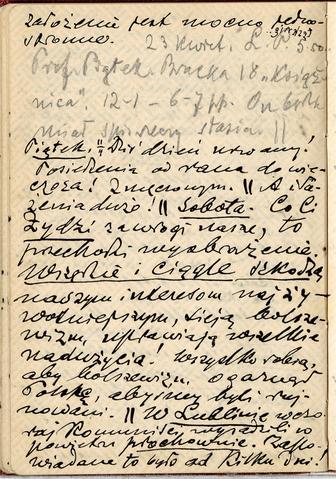 założenie jest mocno jedno-
stronne.
23 kwiet. L. P. 5.50.
Prof. Piątek. Bracka 18 „Książ
nica". 12-1 - 6-7 pp. On był
miał śpiewny Stasia ||
Piątek. || Dziś dzień urwany!
Posiedzenia od rana do wie-
czora! Zmęczonym. || A wra-
żenia duże! || Sobota. Co Ci
Żydzi za wrogi nasze, to
przechodzi wyobrażenie,
Wszędzie i ciągle szkodzą
naszym interesom najży-
wotniejszym, sieją bolsze-
wizm, uprawiają wszelkie
nadużycia! Wszystko robią,
aby bolszewizm ogarnął
Polskę, abyśmy byli zruj-
nowani. || W Lublinie wczo-
raj Komuniści wysadzili w
powietrze prochownie. Zapo-
wiadane to było od kilku dni!